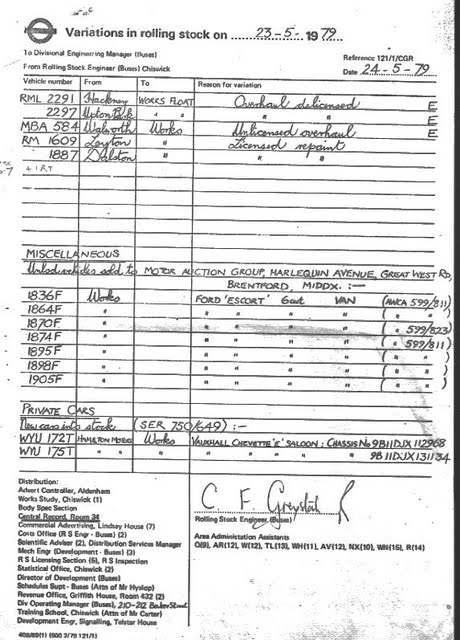 Variations in rolling stock on 23-5-1979
To Divisional Engineering Manager (Buses)
From Rolling Stock Engineer (Buses) Chiswick
Reference 121/1/CGR
Date 24-5-79
Vehicle number From To Reason for variation
RML 2291 Hackney WORKS FLOAT Overhaul delicensed E
2297 Upton Park " " " " E
MBA 584 Walworth Works Unlicensed overhaul E
RM 1609 Leyton " Licensed repaint
1887 Dalston " " "
+ 1 RT
MISCELLANEOUS
vehicles sold to MOTOR AUCTION GROUP, HARLEQUIN AVENUE, GREAT WEST RD,
BRENTFORD, MIDDX. :—
1836F Works FORD 'ESCORT' 6cwt VAN (AWKA 599/811)
1864F " " " " " ( " " )
1870F " " " " " ( " 599/823)
1874F " " " " " ( " 599/811)
1895F " " " " " ( " " )
1898F " " " " " ( " " )
1905F " " " " " ( " " )
PRIVATE CARS
New cars into stock (SER 750/649) :—
WYU 172T HAMILTON MOTORS Works VAUXHALL CHEVETTE 'E' SALOON : CHASSIS No 9B11DJX 112968
WYU 175T " " " " " " " 9B11DJX 131134
Distribution:
Advert Controller, Aldenham
Works Study, Chiswick (1)
Body Spec Section
Central Record, Room 34
Commercial Advertising, Lindsay House (7)
Costs Office (R S Engr - Buses) (2)
Scientific Adviser (2), Distribution Services Manager
Mech Engr (Development - Buses) (3)
R S Licensing Section (5), R S Inspection
Statistical Office, Chiswick (2)
Director of Development (Buses)
Schedules Supt - Buses (Attn of Mr Hyslop)
Revenue Office, Griffith House, Room 432 (2)
Div Operating Manager (Buses), 210-212 Baker Street
Training School, Chiswick (Attn of Mr Carter)
Development Engr, Signalling, Telstar House
C. F.
Rolling Stock Engineer (Buses)
Area Administration Assistants
Q(9), AR(12), W(12), TL(13), WH(11), AV(12), NX(10), WN(15), R(14)
408/69(1) (500 2/79 121/1)